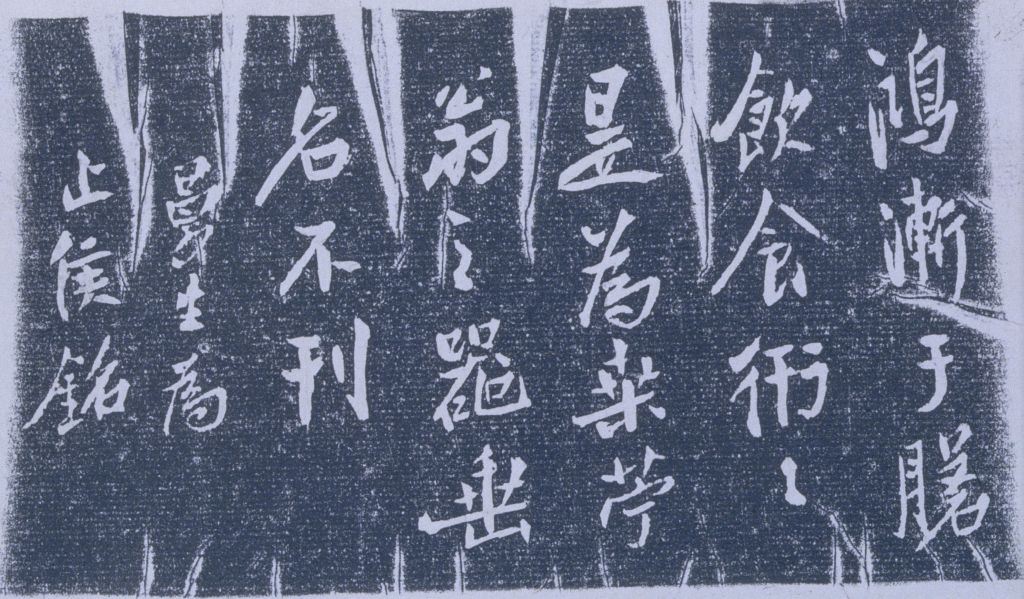 鴻漸于磐
飲食衎々
是為桒苧
翁之器垂
名不刊
曼生為
止侯銘